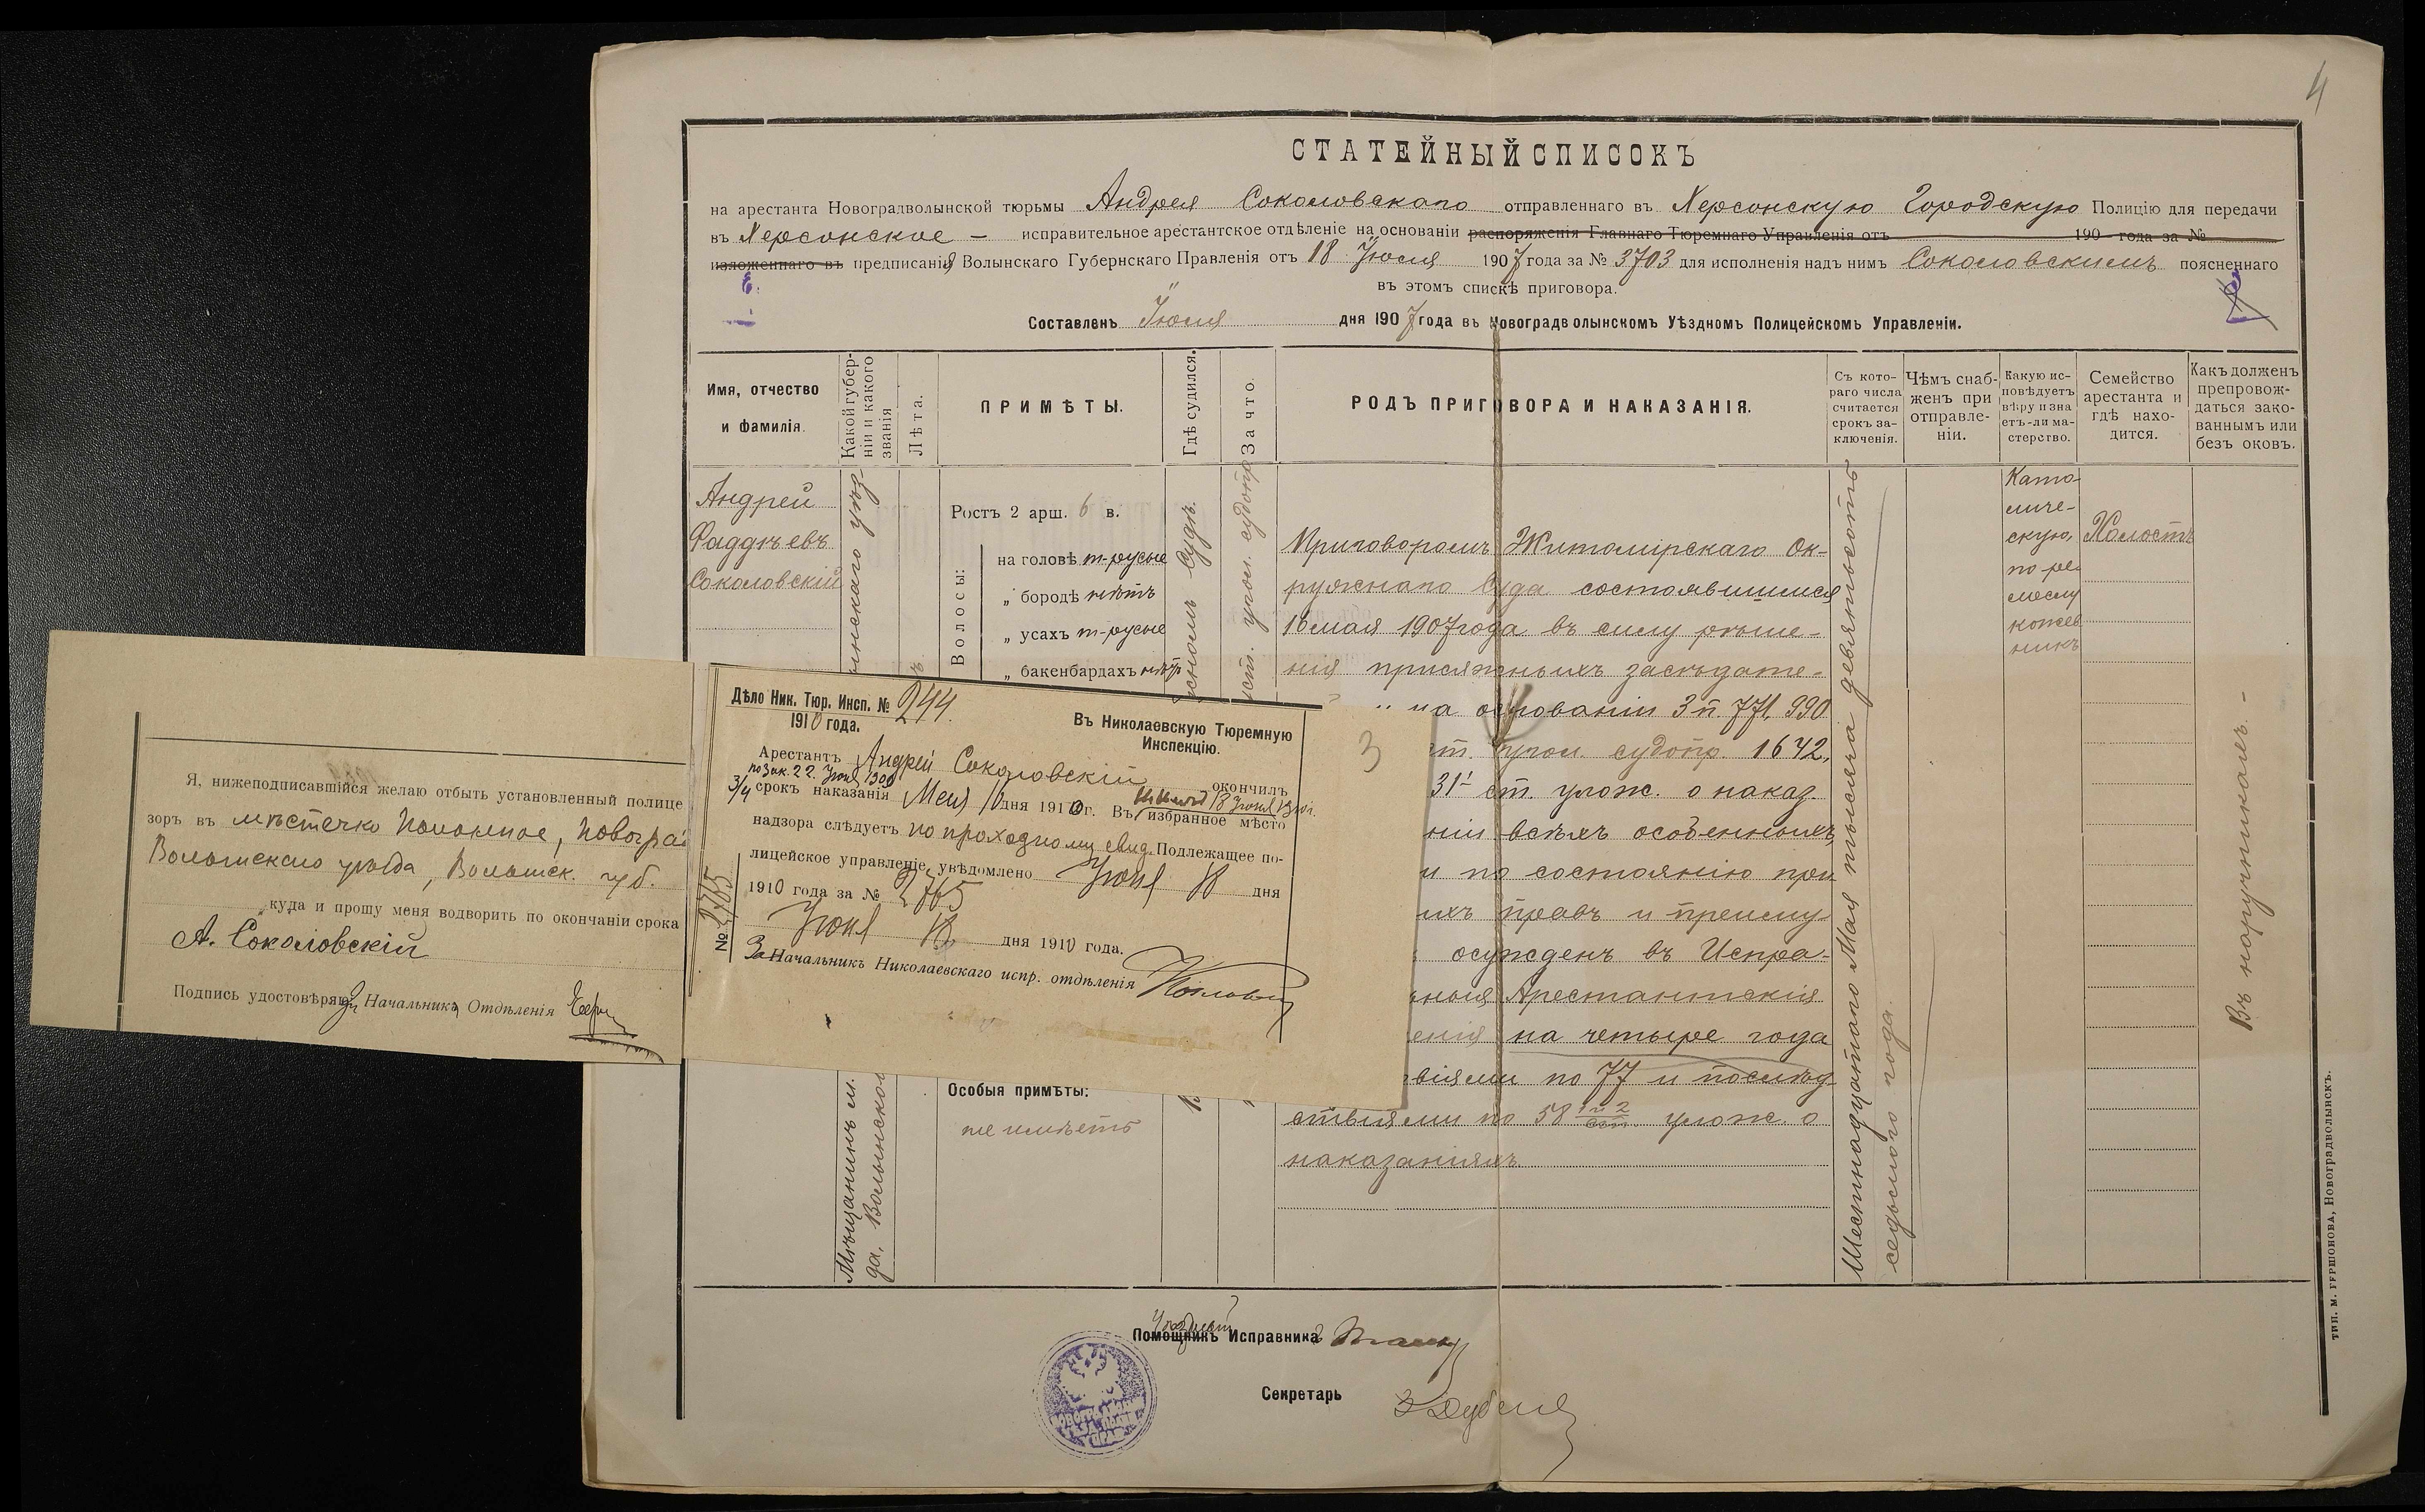 4
СТАТЕЙНЫЙ СПИСОКЪ
на арестанта Новоградволынской тюрьмы Андрея Соколовскаго отправленнаго въ Херсонскую Городскую Полицію для передачи
въ Херсонское — исправительное арестантское отдѣленіе на основаніи распоряженія Главнаго Тюремнаго Управленія отъ 190 года за №
изложеннаго въ предписанія Волынскаго Губернскаго Правленія отъ 18 Іюля 1907 года за № 3703 для исполненія надъ нимъ Соколовскимъ поясненнаго
въ этомъ спискѣ приговора.
Составленъ Іюля дня 1907 года въ Новоградволынскомъ Уѣздномъ Полицейскомъ Управленіи.
Имя, отчество
и фамилія.
Какой губер-
ніи и какого
званія
Лѣта.
ПРИМѢТЫ.
Гдѣ судился.
За что.
РОДЪ ПРИГОВОРА И НАКАЗАНІЯ.
Съ кото-
раго числа
считается
срокъ за-
ключенія.
Чѣмъ снаб-
женъ при
отправле-
ніи.
Какую ис-
повѣдуетъ
вѣру и зна
етъ-ли ма-
стерство.
Семейство
арестанта и
гдѣ нахо-
дится.
Какъ долженъ
препровож-
даться зако-
ваннымъ или
безъ оковъ.
Андрей
Фаддѣевъ
Соколовскій
Мѣщанинъ м.
инскаго уѣз-
да, Волынской
Ростъ 2 арш. 6 в.
Волосы:
на головѣ т-русые
„ бородѣ нѣтъ
„ усахъ т-русые
„ бакенбардахъ нѣтъ
Особыя примѣты:
не имѣетъ
Судѣ.
уст. угол. судопр
Приговоромъ Житомірскаго Ок-
ружнаго Суда состоявшимся
16 мая 1907 года въ силу рѣше-
нія присяжныхъ засѣдате-
на основаніи 3 п. 771, 990
ст. угол. судопр. 1642,
31 ст. улож. о наказ.
ніи всѣхъ особенныхъ,
и по состоянію при
ихъ правъ и преиму-
осужденъ въ Испра-
ныя Арестантскія
енія на четыре года
віями по 77 и послѣд-
ствіями по 58 1 и 2 улож. о
наказаніяхъ
Шестнадцатаго Мая тысяча девятьсотъ
седьмого года.
Като-
личе-
скую,
по ре-
меслу
кожев
никъ
Холостъ
Въ наручникахъ. —
Помощникъ Исправника
Секретарь
ТИП. М. ГЕРШОНОВА, Новоградволынскъ.
Я, нижеподписавшійся желаю отбыть установленный полице
зоръ въ мѣстечко Полонное, Новоград
Волынскаго уѣзда, Волынск. губ.
куда и прошу меня водворить по окончаніи срока
А. Соколовскій
Подпись удостовѣряю: Начальника Отдѣленія
Дѣло Ник. Тюр. Инсп. № 244.
1910 года.
3
Въ Николаевскую Тюремную
Инспекцію.
Арестантъ Андрей Соколовскій окончилъ
по Зак. 22 Іюня 1909
3/4 срокъ наказанія дня 1910 г. Въ избранное мѣсто
18 Іюня 1910 г.
надзора слѣдуетъ по проходному свид. Подлежащее по-
лицейское управленіе увѣдомлено Іюня 18 дня
1910 года за № 2765
Іюня 18 дня 1910 года.
№ 2765
За Начальникъ Николаевскаго испр. отдѣленія